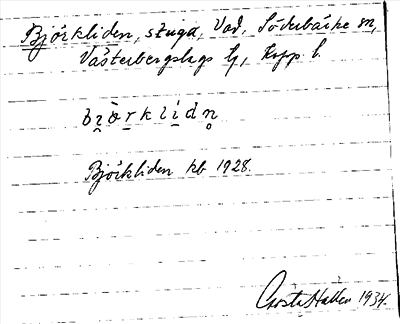 Björkliden, stuga, Vad, Söderbärke sn,
Västerbergslags tg, Kopp l.
bi̯ò̤rklíḍn̥
Björkliden kb 1928.
Gösta Hallén 1934.